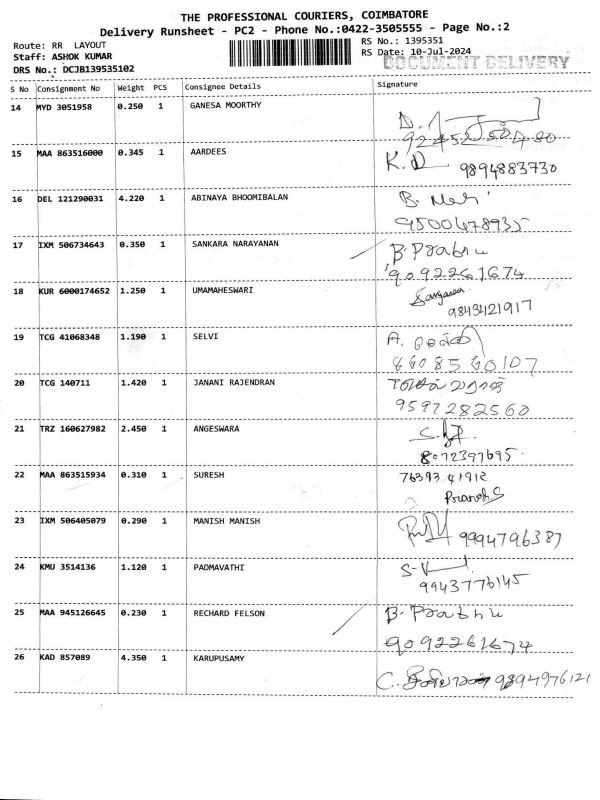 THE PROFESSIONAL COURIERS, COIMBATORE
Delivery Runsheet - PC2 - Phone No.:0422-3505555 - Page No.:2
Route: RR LAYOUT
RS No.: 1395351
Staff: ASHOK KUMAR
RS Date: 10-Jul-2024
DOCUMENT DELIVERY
DRS No.: DCJB139535102
S No Consignment No Weight PCS Consignee Details Signature
14 MYD 3051958 0.250 1 GANESA MOORTHY
15 MAA 863516000 0.345 1 AARDEES K.D 9894883730
16 DEL 121290031 4.220 1 ABINAYA BHOOMIBALAN
9500478935
17 IXM 506734643 0.350 1 SANKARA NARAYANAN B. Prabhu
9092261674
18 KUR 6000174652 1.250 1 UMAMAHESWARI
9843421917
19 TCG 41068348 1.190 1 SELVI A. செல்வி
20 TCG 140711 1.420 1 JANANI RAJENDRAN
9597282560
21 TRZ 160627982 2.450 1 ANGESWARA
8072397695
22 MAA 863515934 0.310 1 SURESH 76393 41912
23 IXM 506405079 0.290 1 MANISH MANISH 9994796387
24 KMU 3514136 1.120 1 PADMAVATHI
9943776145
25 MAA 945126645 0.230 1 RECHARD FELSON B. Prabhu
9092261674
26 KAD 857089 4.350 1 KARUPUSAMY 9894976121